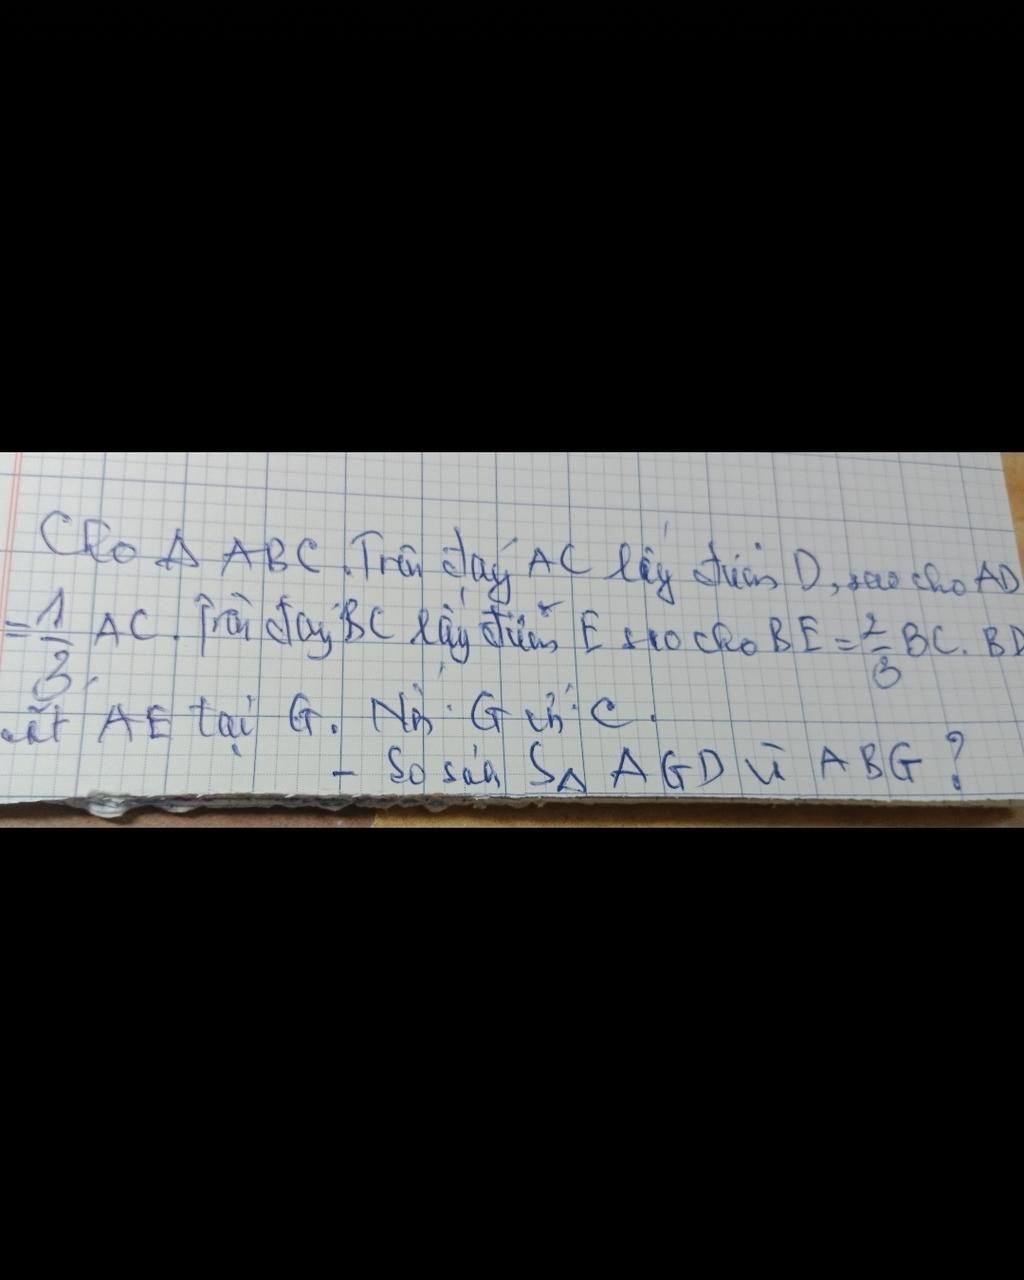 Cho Δ ABC. Trên đáy AC lấy điểm D, sao cho AD
= 1/3 AC. Trên đáy BC lấy điểm E sao cho BE = 2/3 BC. BD
cắt AE tại G. Nối G với C.
- So sánh SΔ AGD và ABG?